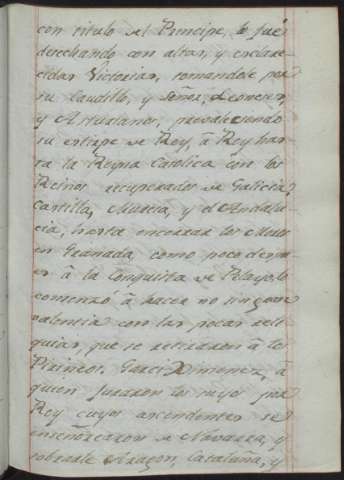 con titulo del Principe, lo fué
derechando con altas, y esclare-
cidas Victorias, tomandole por
su Caudillo, y Señor, Leoneses,
y Asturianos, prevaleciendo
su estirpe de Rey, à Rey has-
ta la Reyna Catolica con los
Reinos recuperados de Galicia,
Castilla, Murcia, y el Andalu-
cia, hasta encerrar los Moros
en Granada, como poco despu-
es à la Conquista de Pelayo, lo
comenzo à hacer no sin gran
valencia con las pocas reli-
quias, que se retiraron à los
Pirineos. Garci Ximenez, à
quien juraron los suyos por
Rey cuyos ascendientes se
enseñorearon de Navarra, y
sobrarbe Aragon, Cataluña, y